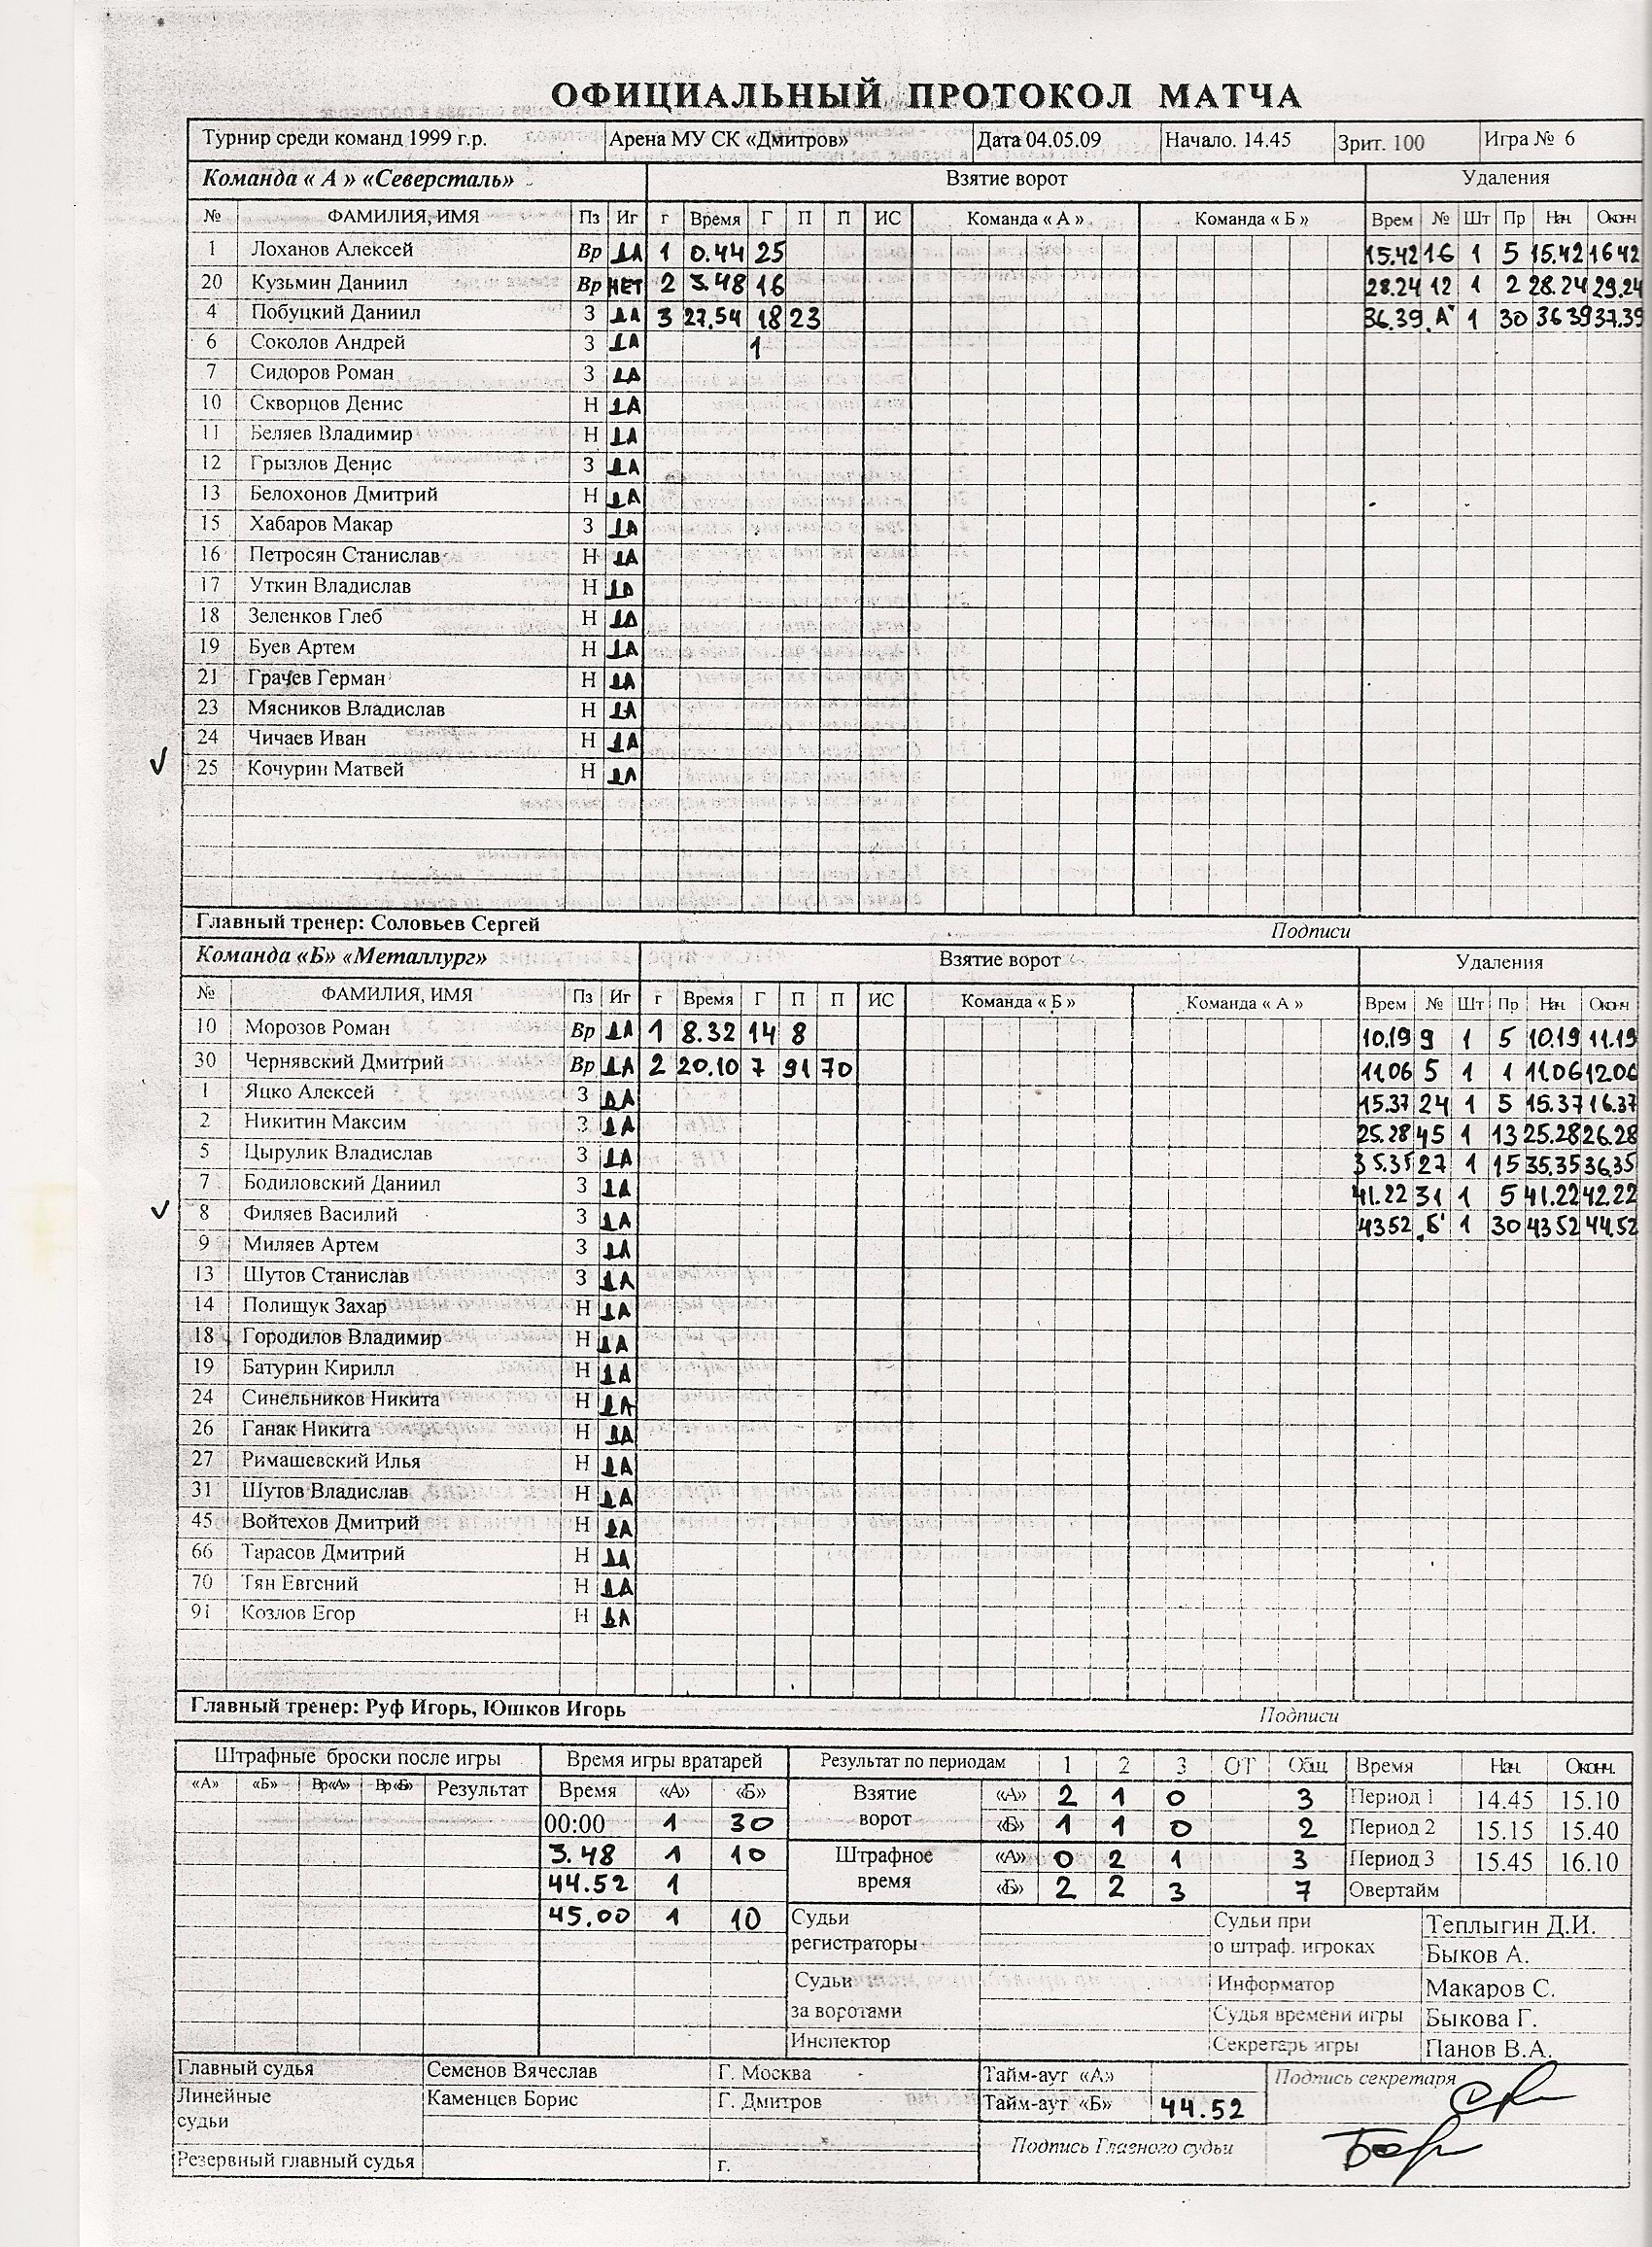 ОФИЦИАЛЬНЫЙ ПРОТОКОЛ МАТЧА
Турнир среди команд 1999 г.р. Арена МУ СК «Дмитров» Дата 04.05.09 Начало. 14.45 Зрит. 100 Игра № 6
Команда « А » «Северсталь» Взятие ворот Удаления
№ ФАМИЛИЯ, ИМЯ Пз Иг г Время Г П П ИС Команда « А » Команда « Б » Врем № Шт Пр Нач. Оконч
1 Лоханов Алексей Вр ДА 1 0.44 25 15.42 16 1 5 15.42 16 42
20 Кузьмин Даниил Вр НЕТ 2 3.48 16 28.24 12 1 2 28.24 29.24
4 Побуцкий Даниил З ДА 3 27.54 18 23 36.39 „А" 1 30 36 39 37.39
6 Соколов Андрей З ДА 1
7 Сидоров Роман З ДА
10 Скворцов Денис Н ДА
11 Беляев Владимир Н ДА
12 Грызлов Денис З ДА
13 Белохонов Дмитрий Н ДА
15 Хабаров Макар З ДА
16 Петросян Станислав Н ДА
17 Уткин Владислав Н ДА
18 Зеленков Глеб Н ДА
19 Буев Артем Н ДА
21 Грачев Герман Н ДА
23 Мясников Владислав Н ДА
24 Чичаев Иван Н ДА
25 Кочурин Матвей Н ДА
Главный тренер: Соловьев Сергей Подписи
Команда «Б» «Металлург» Взятие ворот Удаления
№ ФАМИЛИЯ, ИМЯ Пз Иг г Время Г П П ИС Команда « Б » Команда « А » Врем № Шт Пр Нач. Оконч
10 Морозов Роман Вр ДА 1 8.32 14 8 10.19 9 1 5 10.19 11.19
30 Чернявский Дмитрий Вр ДА 2 20.10 7 91 70 11.06 5 1 1 11.06 12.06
1 Яцко Алексей З ДА 15.37 24 1 5 15.37 16.37
2 Никитин Максим З ДА 25.28 45 1 13 25.28 26.28
5 Цырулик Владислав З ДА 35.35 27 1 15 35.35 36.35
7 Бодиловский Даниил З ДА 41.22 31 1 5 41.22 42.22
8 Филяев Василий З ДА 43 52 „Б" 1 30 43 52 44.52
9 Миляев Артем З ДА
13 Шутов Станислав З ДА
14 Полищук Захар Н ДА
18 Городилов Владимир Н ДА
19 Батурин Кирилл Н ДА
24 Синельников Никита Н ДА
26 Ганак Никита Н ДА
27 Римашевский Илья Н ДА
31 Шутов Владислав Н ДА
45 Войтехов Дмитрий Н ДА
66 Тарасов Дмитрий Н ДА
70 Тян Евгений Н ДА
91 Козлов Егор Н ДА
Главный тренер: Руф Игорь, Юшков Игорь Подписи
Штрафные броски после игры Время игры вратарей Результат по периодам 1 2 3 ОТ Общ. Время Нач. Оконч.
«А» «Б» Вр«А» Вр«Б» Результат Время «А» «Б» Взятие ворот «А» 2 1 0 3 Период 1 14.45 15.10
00:00 1 30 «Б» 1 1 0 2 Период 2 15.15 15.40
3.48 1 10 Штрафное время «А» 0 2 1 3 Период 3 15.45 16.10
44.52 1 «Б» 2 2 3 7 Овертайм
45.00 1 10 Судьи регистраторы Судьи при о штраф. игроках Теплыгин Д.И.
Быков А.
Судьи за воротами Информатор Макаров С.
Судья времени игры Быкова Г.
Инспектор Секретарь игры Панов В.А.
Главный судья Семенов Вячеслав Г. Москва Тайм-аут «А» Подпись секретаря
Линейные судьи Каменцев Борис Г. Дмитров Тайм-аут «Б» 44.52
Подпись Главного судьи
Резервный главный судья г.